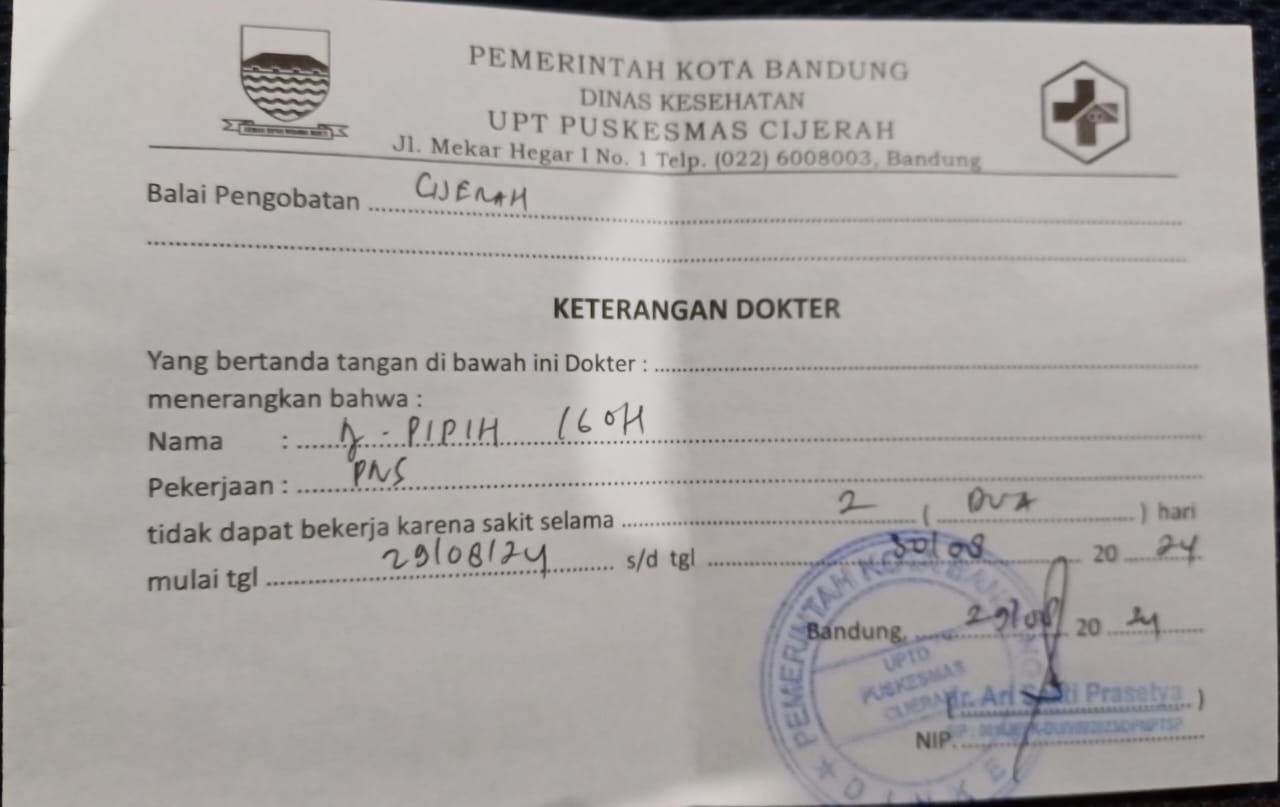 PEMERINTAH KOTA BANDUNG
DINAS KESEHATAN
UPT PUSKESMAS CIJERAH
Jl. Mekar Hegar I No. 1 Telp. (022) 6008003, Bandung
Balai Pengobatan CIJERAH
KETERANGAN DOKTER
Yang bertanda tangan di bawah ini Dokter :
menerangkan bahwa :
Nama : PIPIH
Pekerjaan : PNS
tidak dapat bekerja karena sakit selama 2 ( DUA ) hari
mulai tgl 29/08/24 s/d tgl 30/08 20 24
Bandung, 29/08 20 24
PEMERINTAH KOTA BANDUNG
UPTD
PUSKESMAS
CIJERAH
(dr. Ari Prasetya)
NIP.